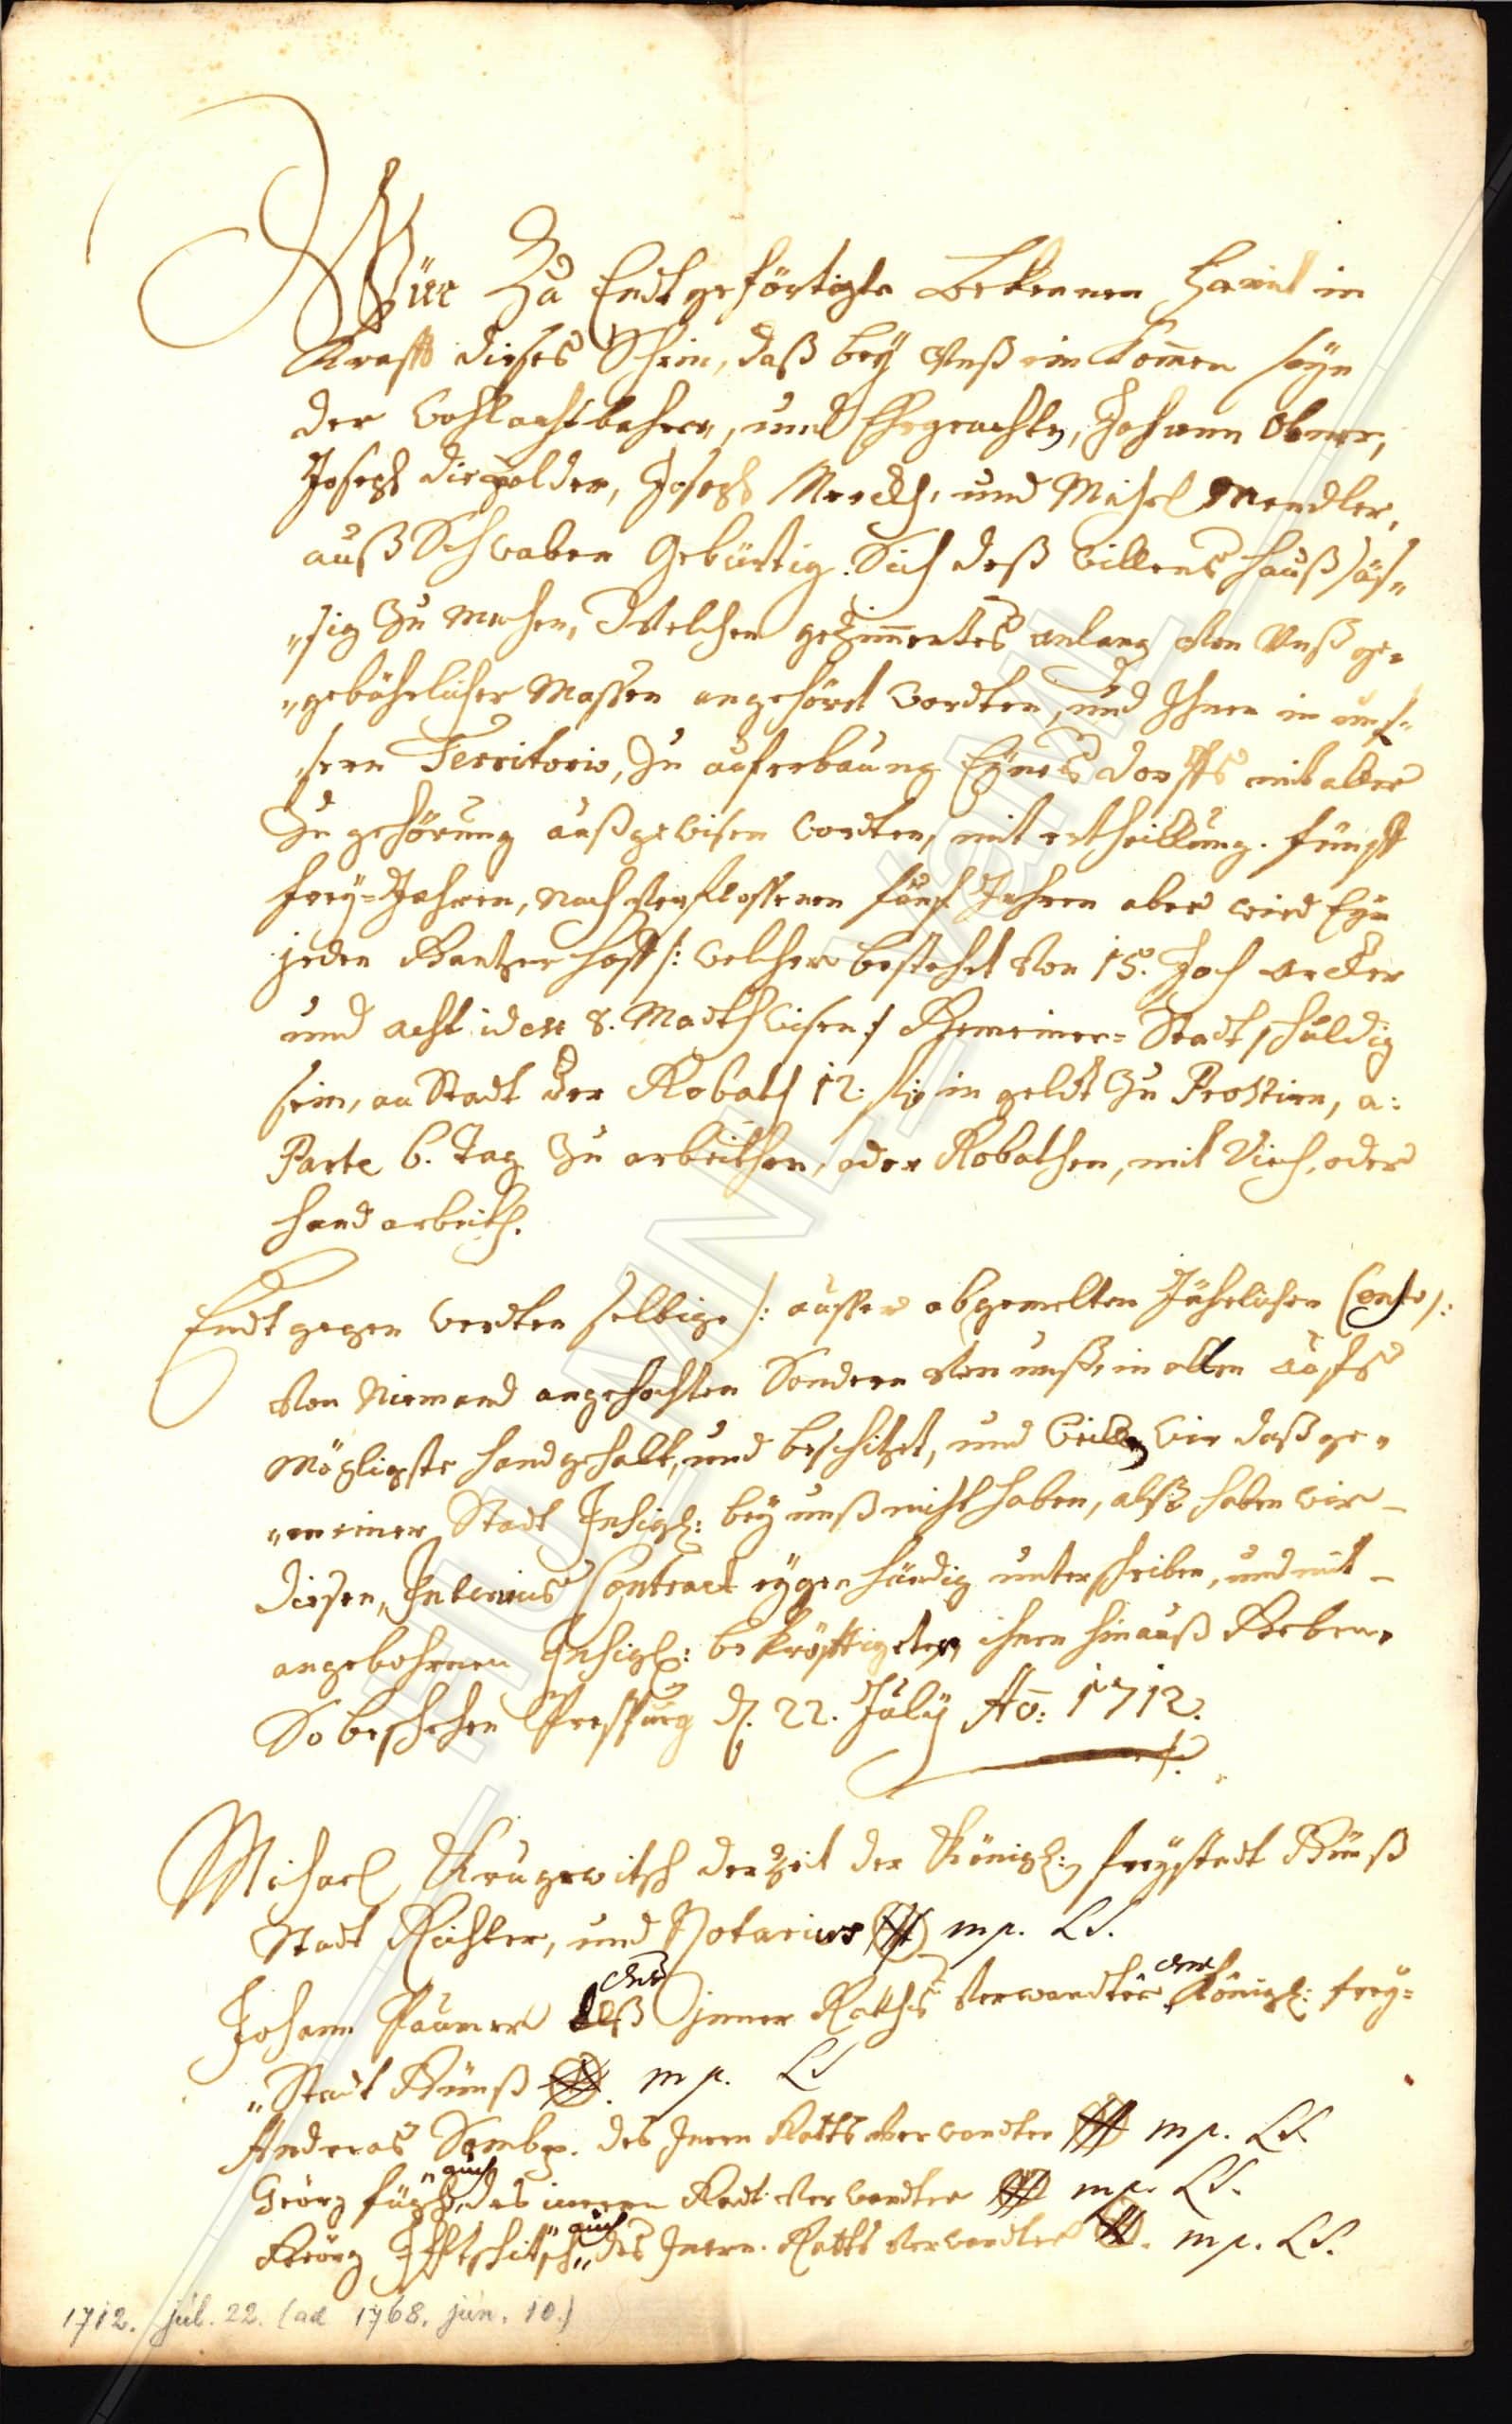 Wür Zu Endt geförtigte bekennen hamit in
Krafft dieses Schein, daß bey Vnß ein komen seyn
der Wohlachtbahrer, und Ehrgeachte, Johann Obmer,
Joseph Diepolder, Joseph Merckh, und Michel Mendler,
auß Schwaben Gebürtig. Sich deß Willens Hauß säs„
„sig Zu machen, Welchen gezimentes anlang Von Vnß ge„
„gebührlicher Massen angehört Wordten, und Ihnen in uns„
„sern Territorio, Zu auferbauung Eynes dorffs mit aller
Zu gehörung außgewisen Wordten, mit ertheillung. fünff
frey=Jahren, nach Verflossenen fünf Jahren aber wird Eyn
jeden Gantzer hoff /: Welcher bestehet Von 15. Joch acker
und acht idest 8. Madth Wisen :/ Gemeiner=Stadt schuldig
sein, an Stadt der Robath 12: fl: in geldt Zu Prostirn, a:
Parte 6. Tag Zu arbeithen, oder Robathen, mit Vieh, oder
hand arbeith.
Endt gegen Werdten selbige /: ausser obgemelten Jährlichen Cens :/
Von Niemand angefochten Sondern Von unß, in allen aufs
Mögligste hand gehalt, und beschitzet, und Weillen Wir daß ge„
„meiner Stadt Insigl: bey unß nicht haben, alß haben wir
diesen, Interims Contract eygen händig unterschriben, und mit
angebohrnen Insigl: bekröfftigter ihnen hinauß Geben,
So beschehen Prespurg d. 22. July Ao: 1712.
Michael Kragewitsch derzeit der Königl: freystadt Günß
Stadt Richter, und Notarius mp. LS.
Johann Paumer des inner Raths Verwandter der Königl: frey=
„Stadt Günß mp. LS
Andreas des Inern Raths Verwandter mp. LS.
Georg „auch des inern Radt Verwandter mp. LS.
Georg „auch“ des Inern Raths Verwandter mp. LS.
1712. júl. 22. (ad 1768. jún. 10.)
HU_MNL_VaML_